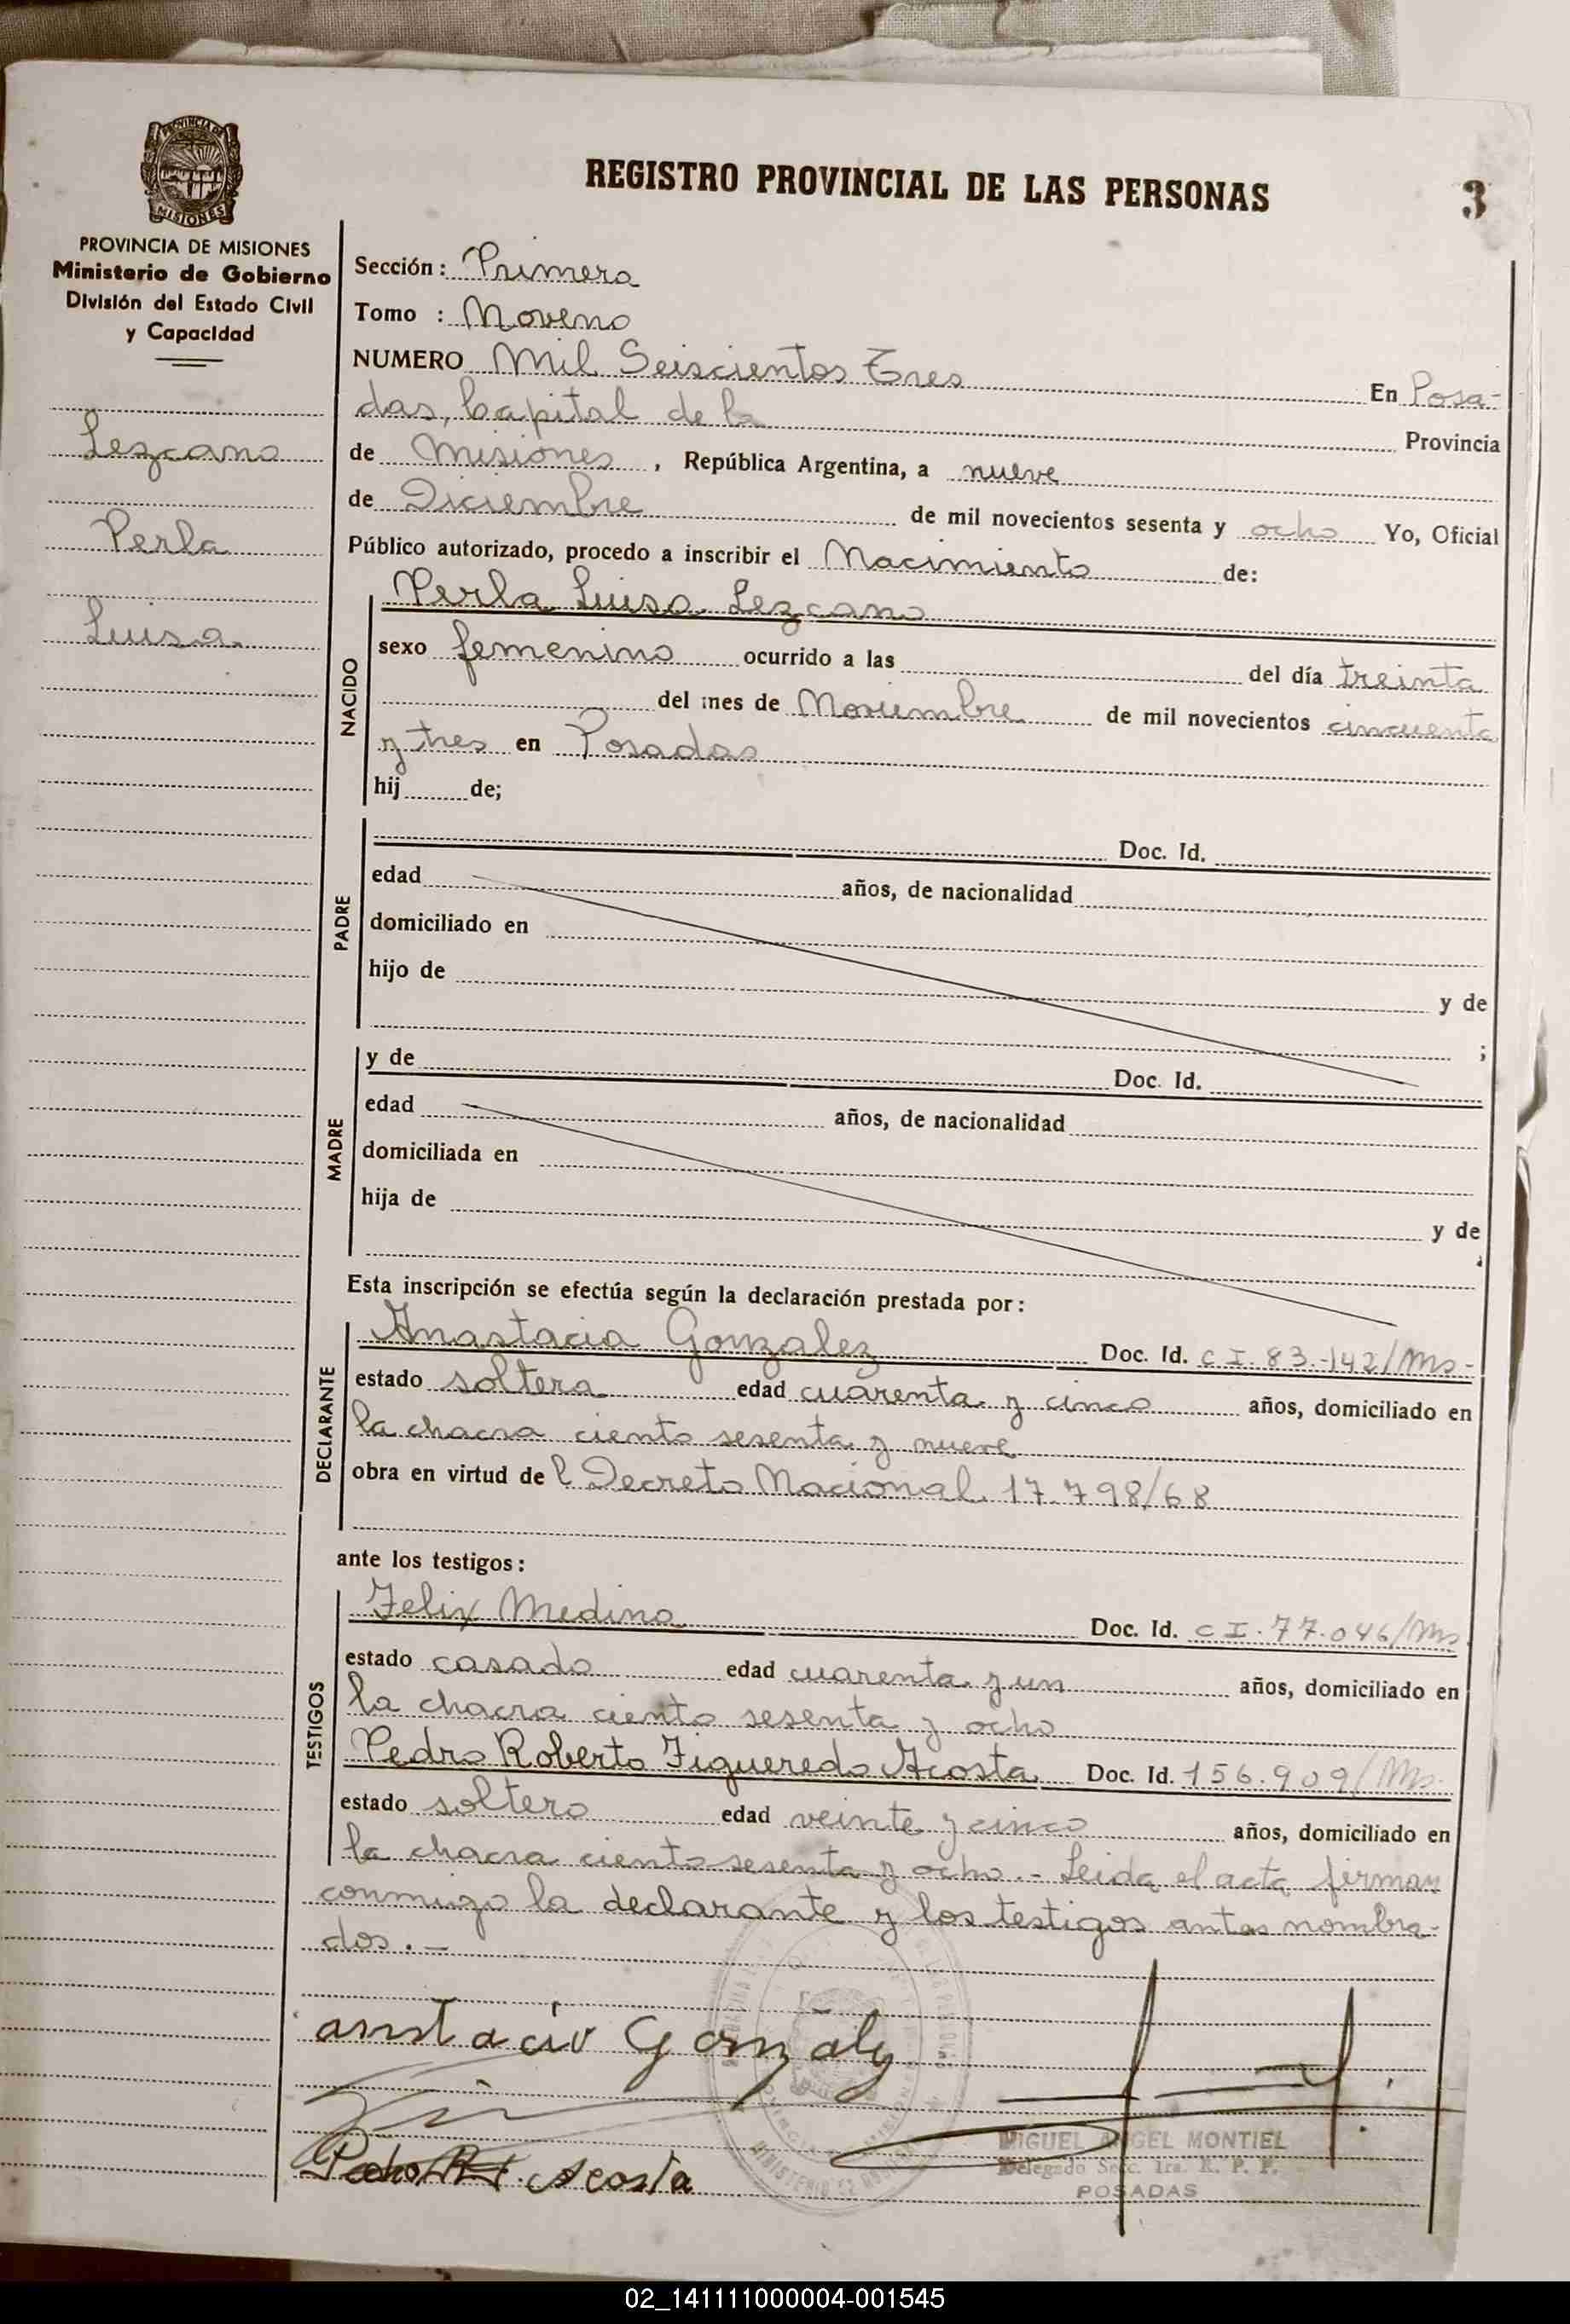 PROVINCIA DE MISIONES
REGISTRO PROVINCIAL DE LAS PERSONAS
3
PROVINCIA DE MISIONES
Ministerio de Gobierno
División del Estado Civil
y Capacidad
Lezcano
Perla
Luisa
Sección: Primera
Tomo : Noveno
NUMERO Mil Seiscientos Tres En Posa-
das, Capital de la Provincia
de Misiones, República Argentina, a nueve
de Diciembre de mil novecientos sesenta y ocho Yo, Oficial
Público autorizado, procedo a inscribir el Nacimiento de:
NACIDO
Perla Luisa Lezcano
sexo femenino ocurrido a las del día treinta
del mes de Noviembre de mil novecientos cincuenta
y tres en Posadas
hij de;
PADRE
Doc. Id.
edad años, de nacionalidad
domiciliado en
hijo de y de
;
MADRE
y de Doc. Id.
edad años, de nacionalidad
domiciliada en
hija de y de
Esta inscripción se efectúa según la declaración prestada por:
DECLARANTE
Anastacia Gonzalez Doc. Id. C I. 83.-142/Ms-
estado soltera edad cuarenta y cinco años, domiciliado en
la chacra ciento sesenta y nueve
obra en virtud de l Decreto Nacional 17.798/68
ante los testigos:
TESTIGOS
Felix Medina Doc. Id. C I. 77.046/Ms
estado casado edad cuarenta y un años, domiciliado en
la chacra ciento sesenta y ocho
Pedro Roberto Figueredo Acosta Doc. Id. 156.909/Ms.
estado soltero edad veinte y cinco años, domiciliado en
la chacra ciento sesenta y ocho.- Leida el acta firman
conmigo la declarante y los testigos antes nombra-
dos.-
Acosta
MIGUEL ANGEL MONTIEL
Delegado Secc. 1ra. R. P. P.
POSADAS
02_141111000004-001545